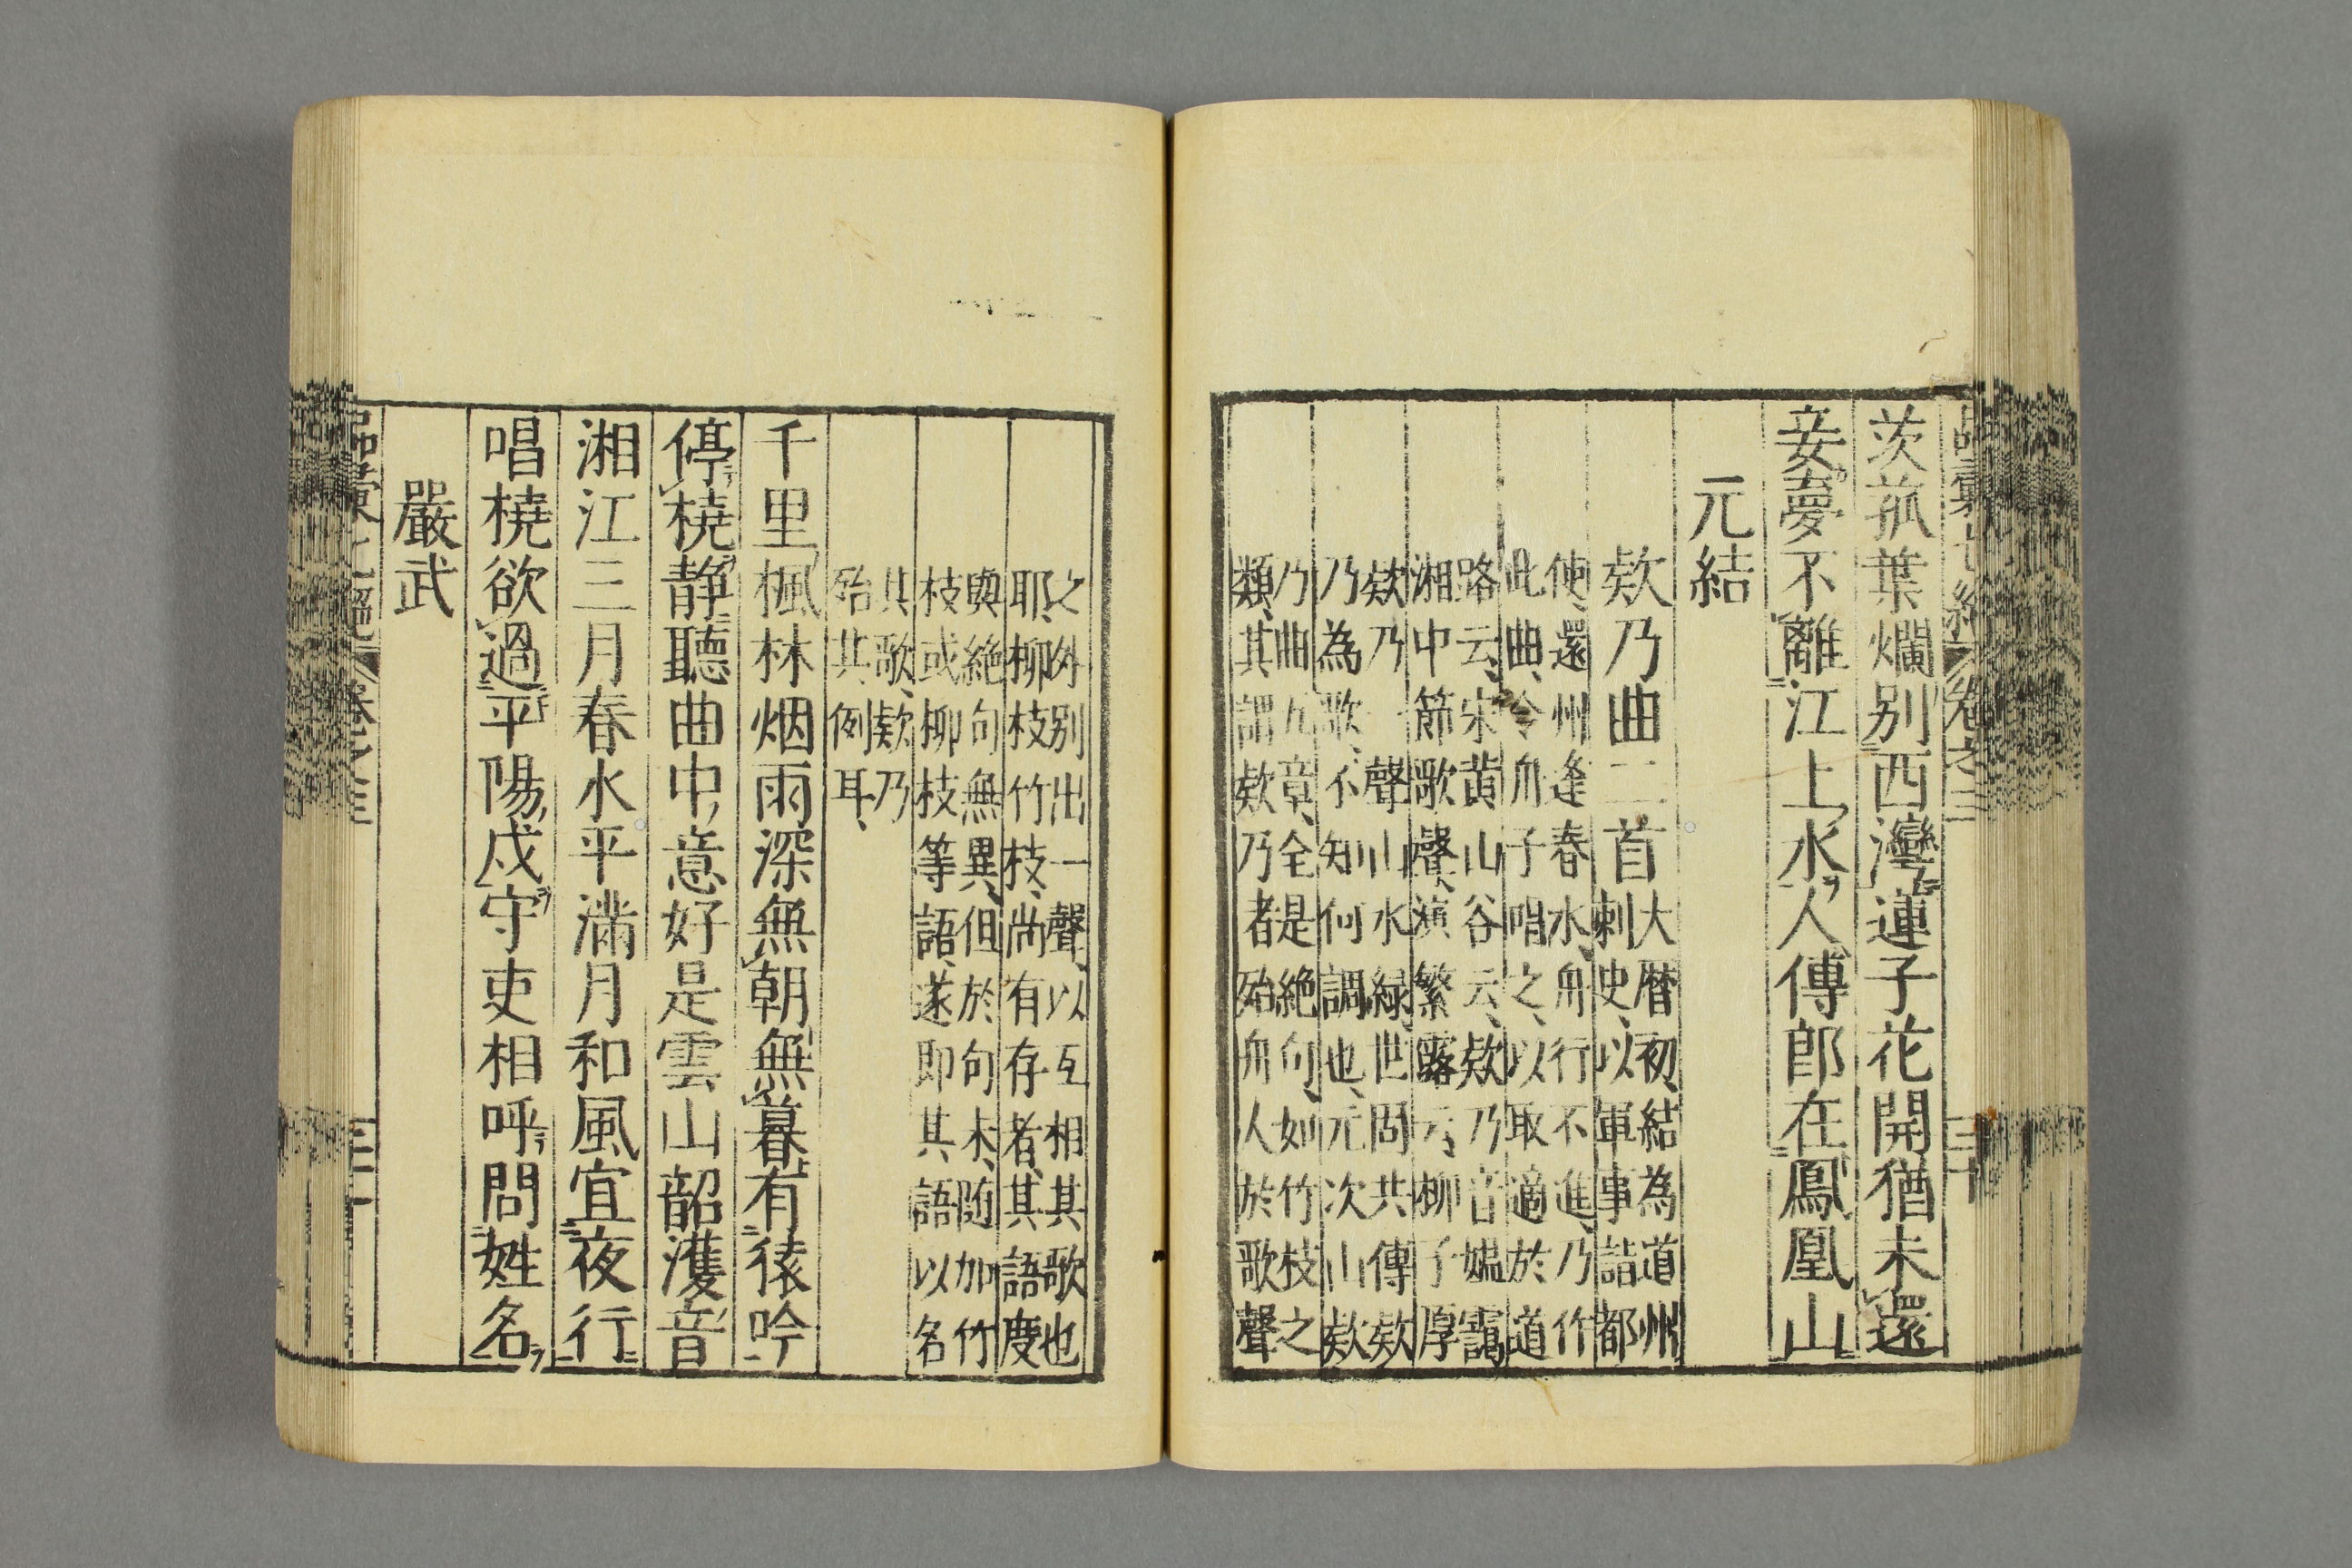 茨菰葉爛別西灣蓮子花開猶未還
妾夢不離江上水人傳郎在鳳凰山
元結
欸乃曲二首
大暦初結為道州
刺史以軍事詣都
使還州逢春水舟行不進乃作
此曲令舟子唱之以取適於道
路云宋黄山谷云欸乃音媪靄
湘中節歌聲演繁露云柳子厚
欸乃一聲山水緑世固共傳欸
乃為歌不知何調也元次山欸
乃曲五章全是絶句如竹枝之
類其謂欸乃者殆舟人於歌聲
之外別出一聲以互相其歌也
耶柳枝竹枝尚有存者其語度
與絶句無異但於句末随加竹
枝或柳枝等語遂即其語以名
其歌欸乃
殆其例耳
千里楓林烟雨深無朝無暮有猿吟
停橈静聽曲中意好是雲山韶濩音
湘江二月春水平滿月和風宜夜行
唱橈欲過平陽戍守吏相呼問姓名
嚴武